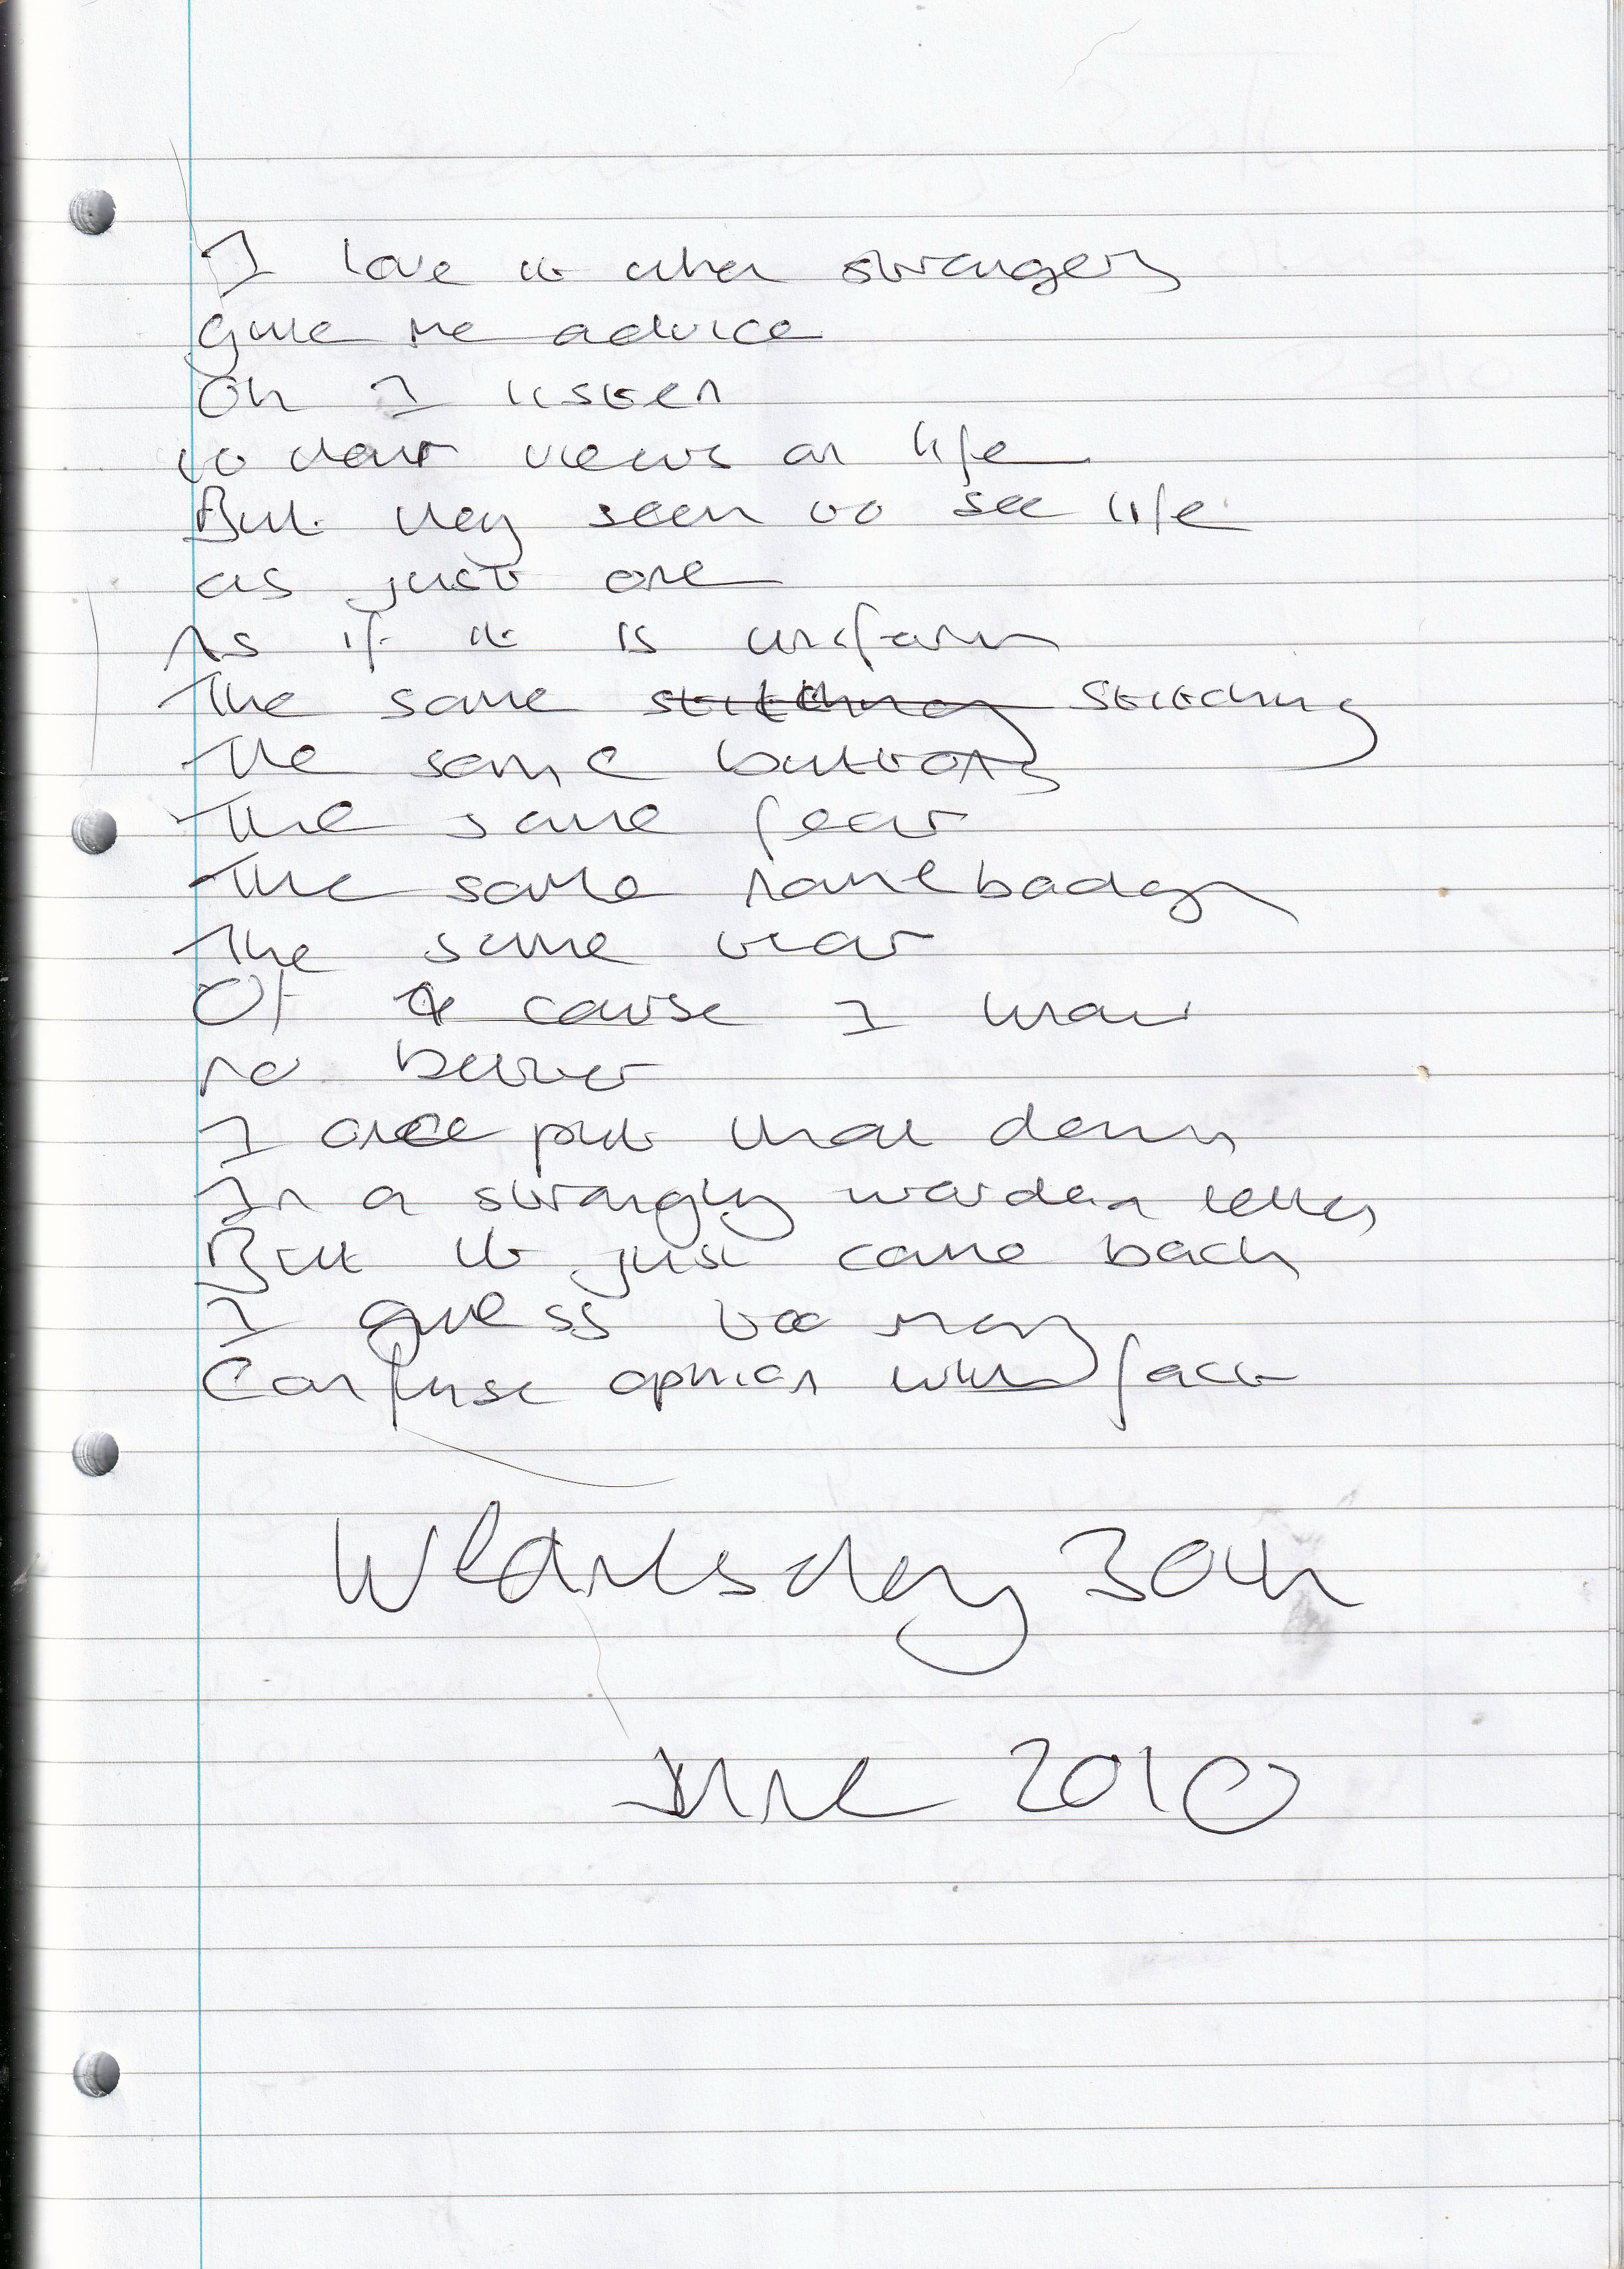 I love it when strangers
Give me advice
Oh I listen
to their views on life
But they seem to see life
as just one
As if it is uniform
The same stitching stitching
The same buttons
The same fear
The same name badge
The same
Of course I know
no better
I once put that down
In a strongly worded letter
But it just came back
I guess too many
Confuse opinion with fact
Wednesday 30th
June 2010